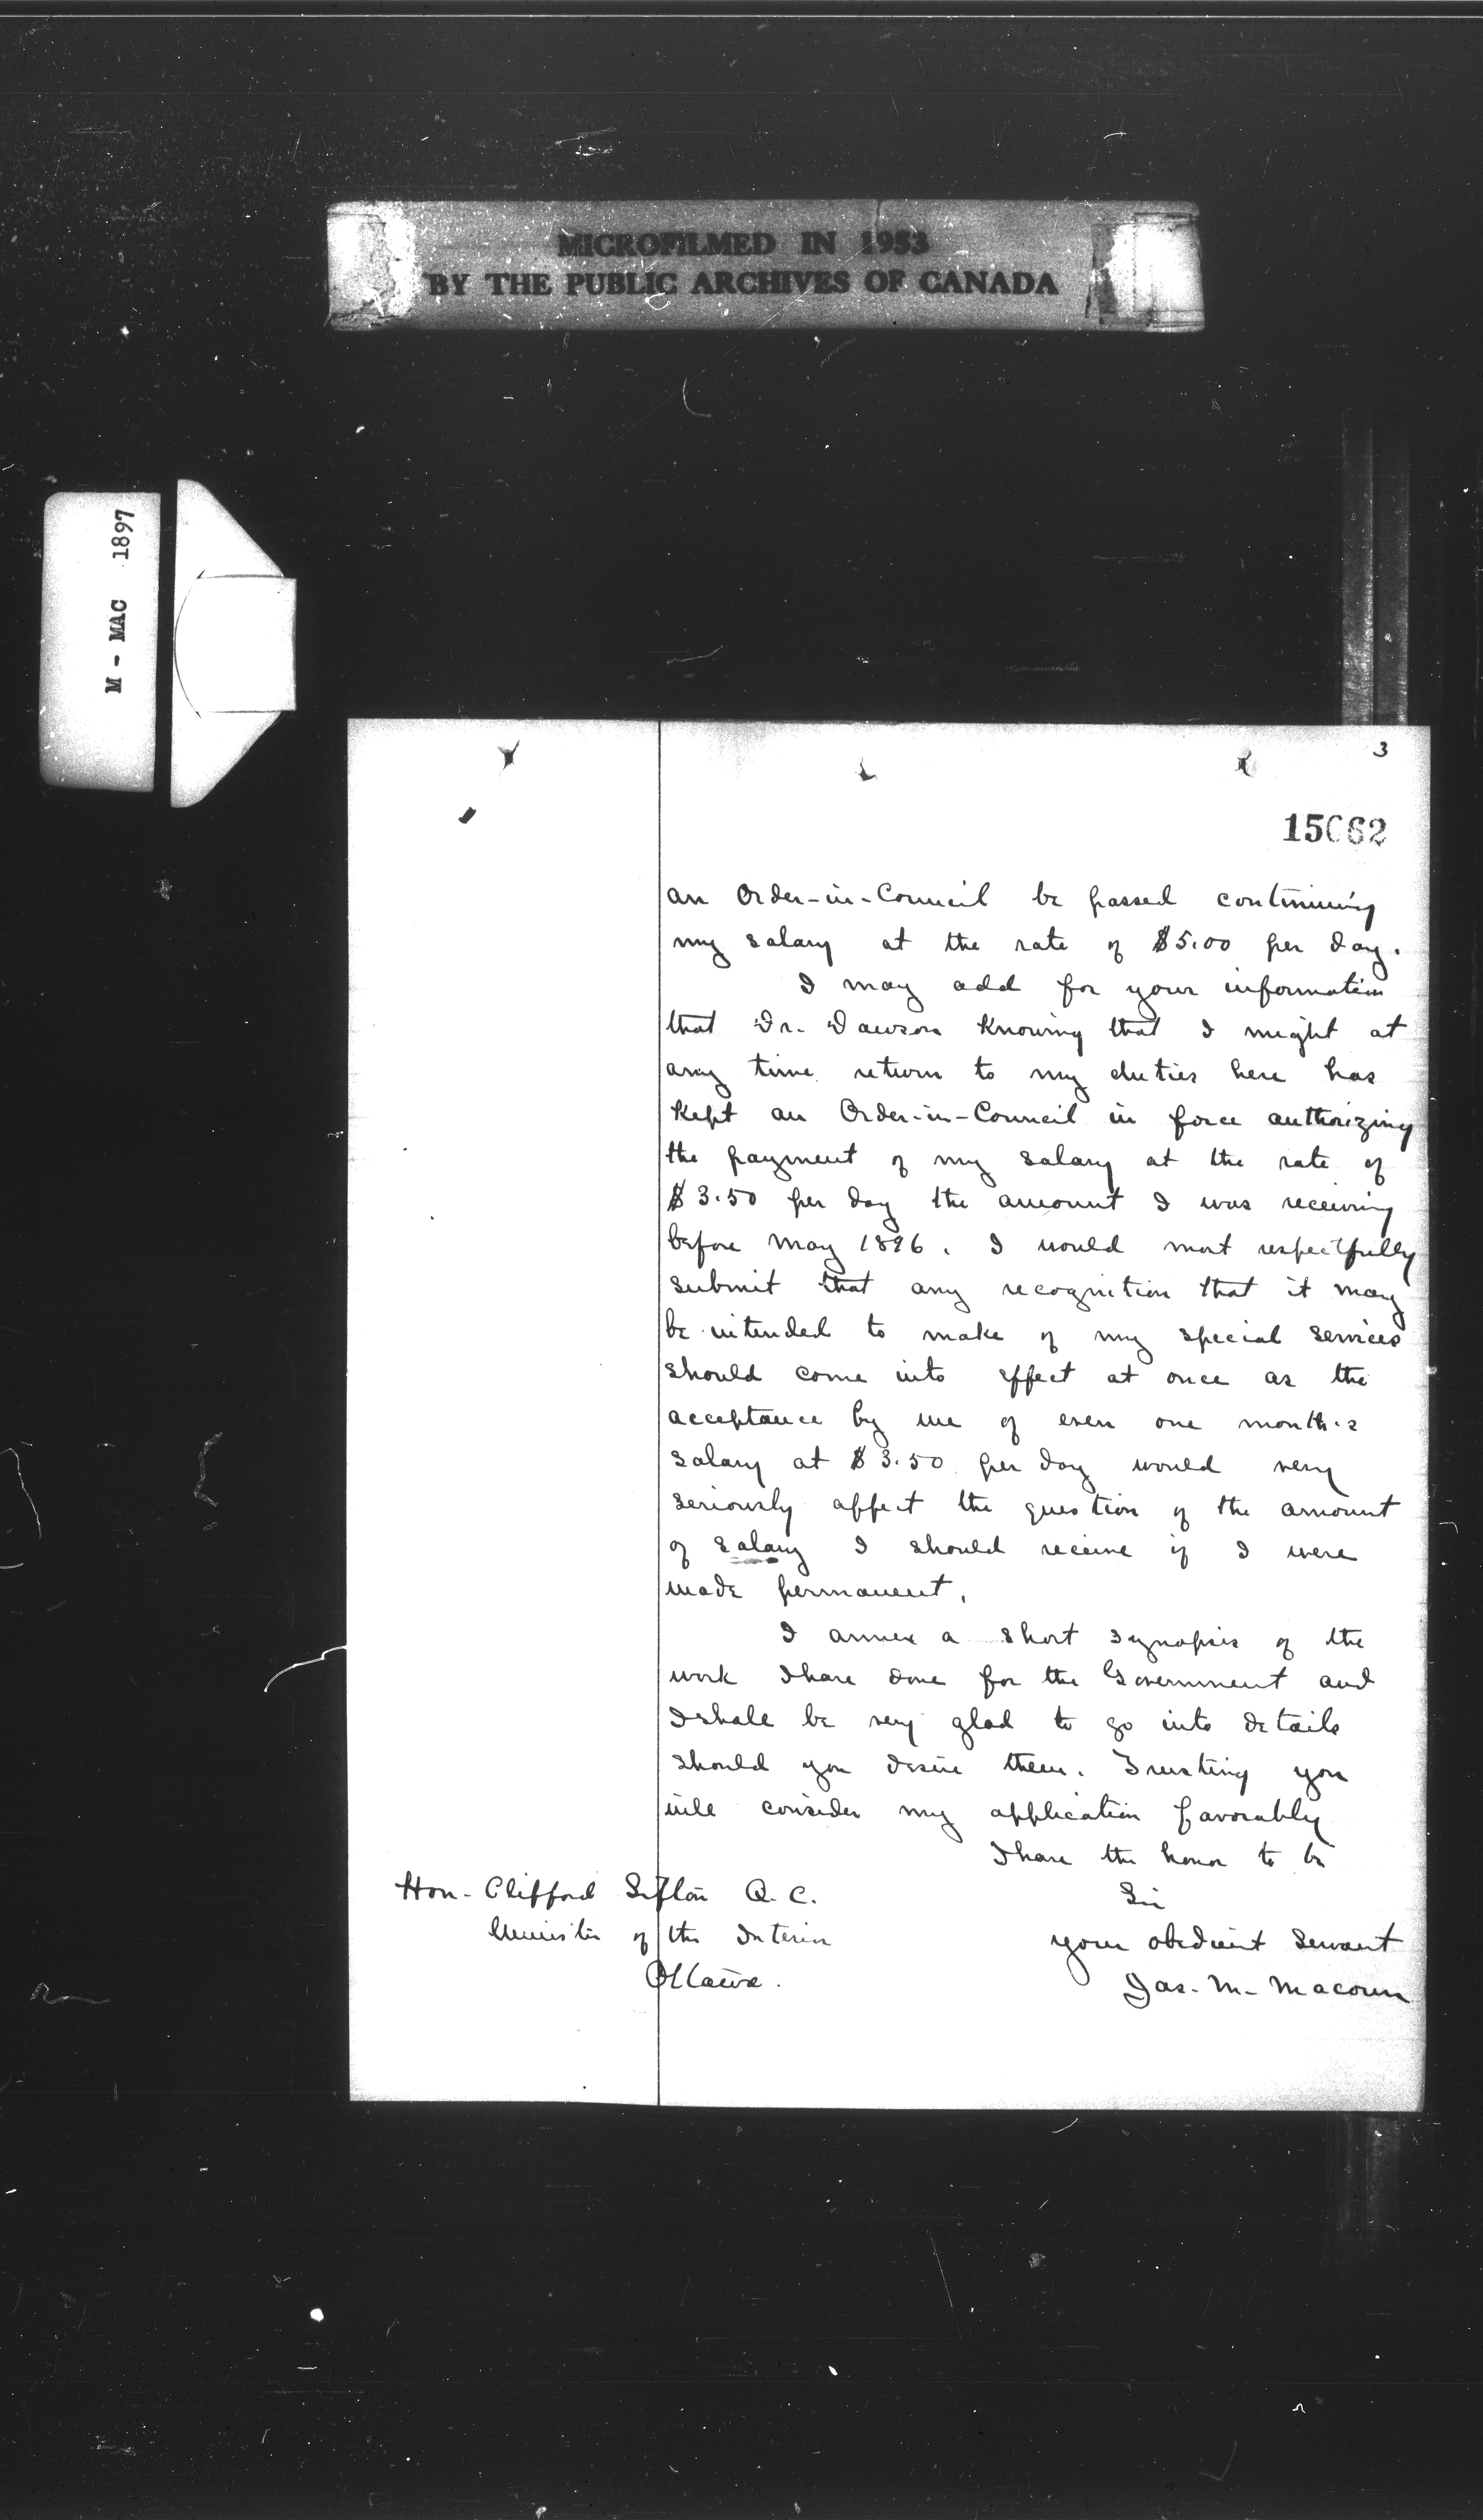 MICROFILMED IN 1953
BY THE PUBLIC ARCHIVES OF CANADA
M - MAC 1897
3
15062
an Order-in-Council be passed continuing
my salary at the rate of $5.00 per day.
I may add for your information
that Dr. Dawson knowing that I might at
any time return to my duties here has
kept an Order-in-Council in force authorizing
the payment of my salary at the rate of
$3.50 per day the amount I was receiving
before May 1896. I would most respectfully
submit that any recognition that it may
be intended to make of my special services
should come into effect at once as the
acceptance by me of even one month's
salary at $3.50 per day would very
seriously affect the question of the amount
of salary I should receive if I were
made permanent.
I annex a short synopsis of the
work I have done for the Government and
I shall be very glad to go into details
should you desire them. Trusting you
will consider my application favorably
I have the honor to be
Sir
your obedient servant
Jas. M. Macoun
Hon. Clifford Sifton Q.C.
Minister of the Interior
Ottawa.